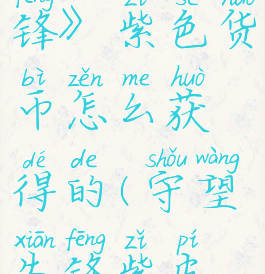 fēng zǐ sè huò
锋》 紫色货
bì zěn me huò
币怎么获
dé de shǒu wàng
得的(守望
xiān fēng zǐ pí
先锋紫皮